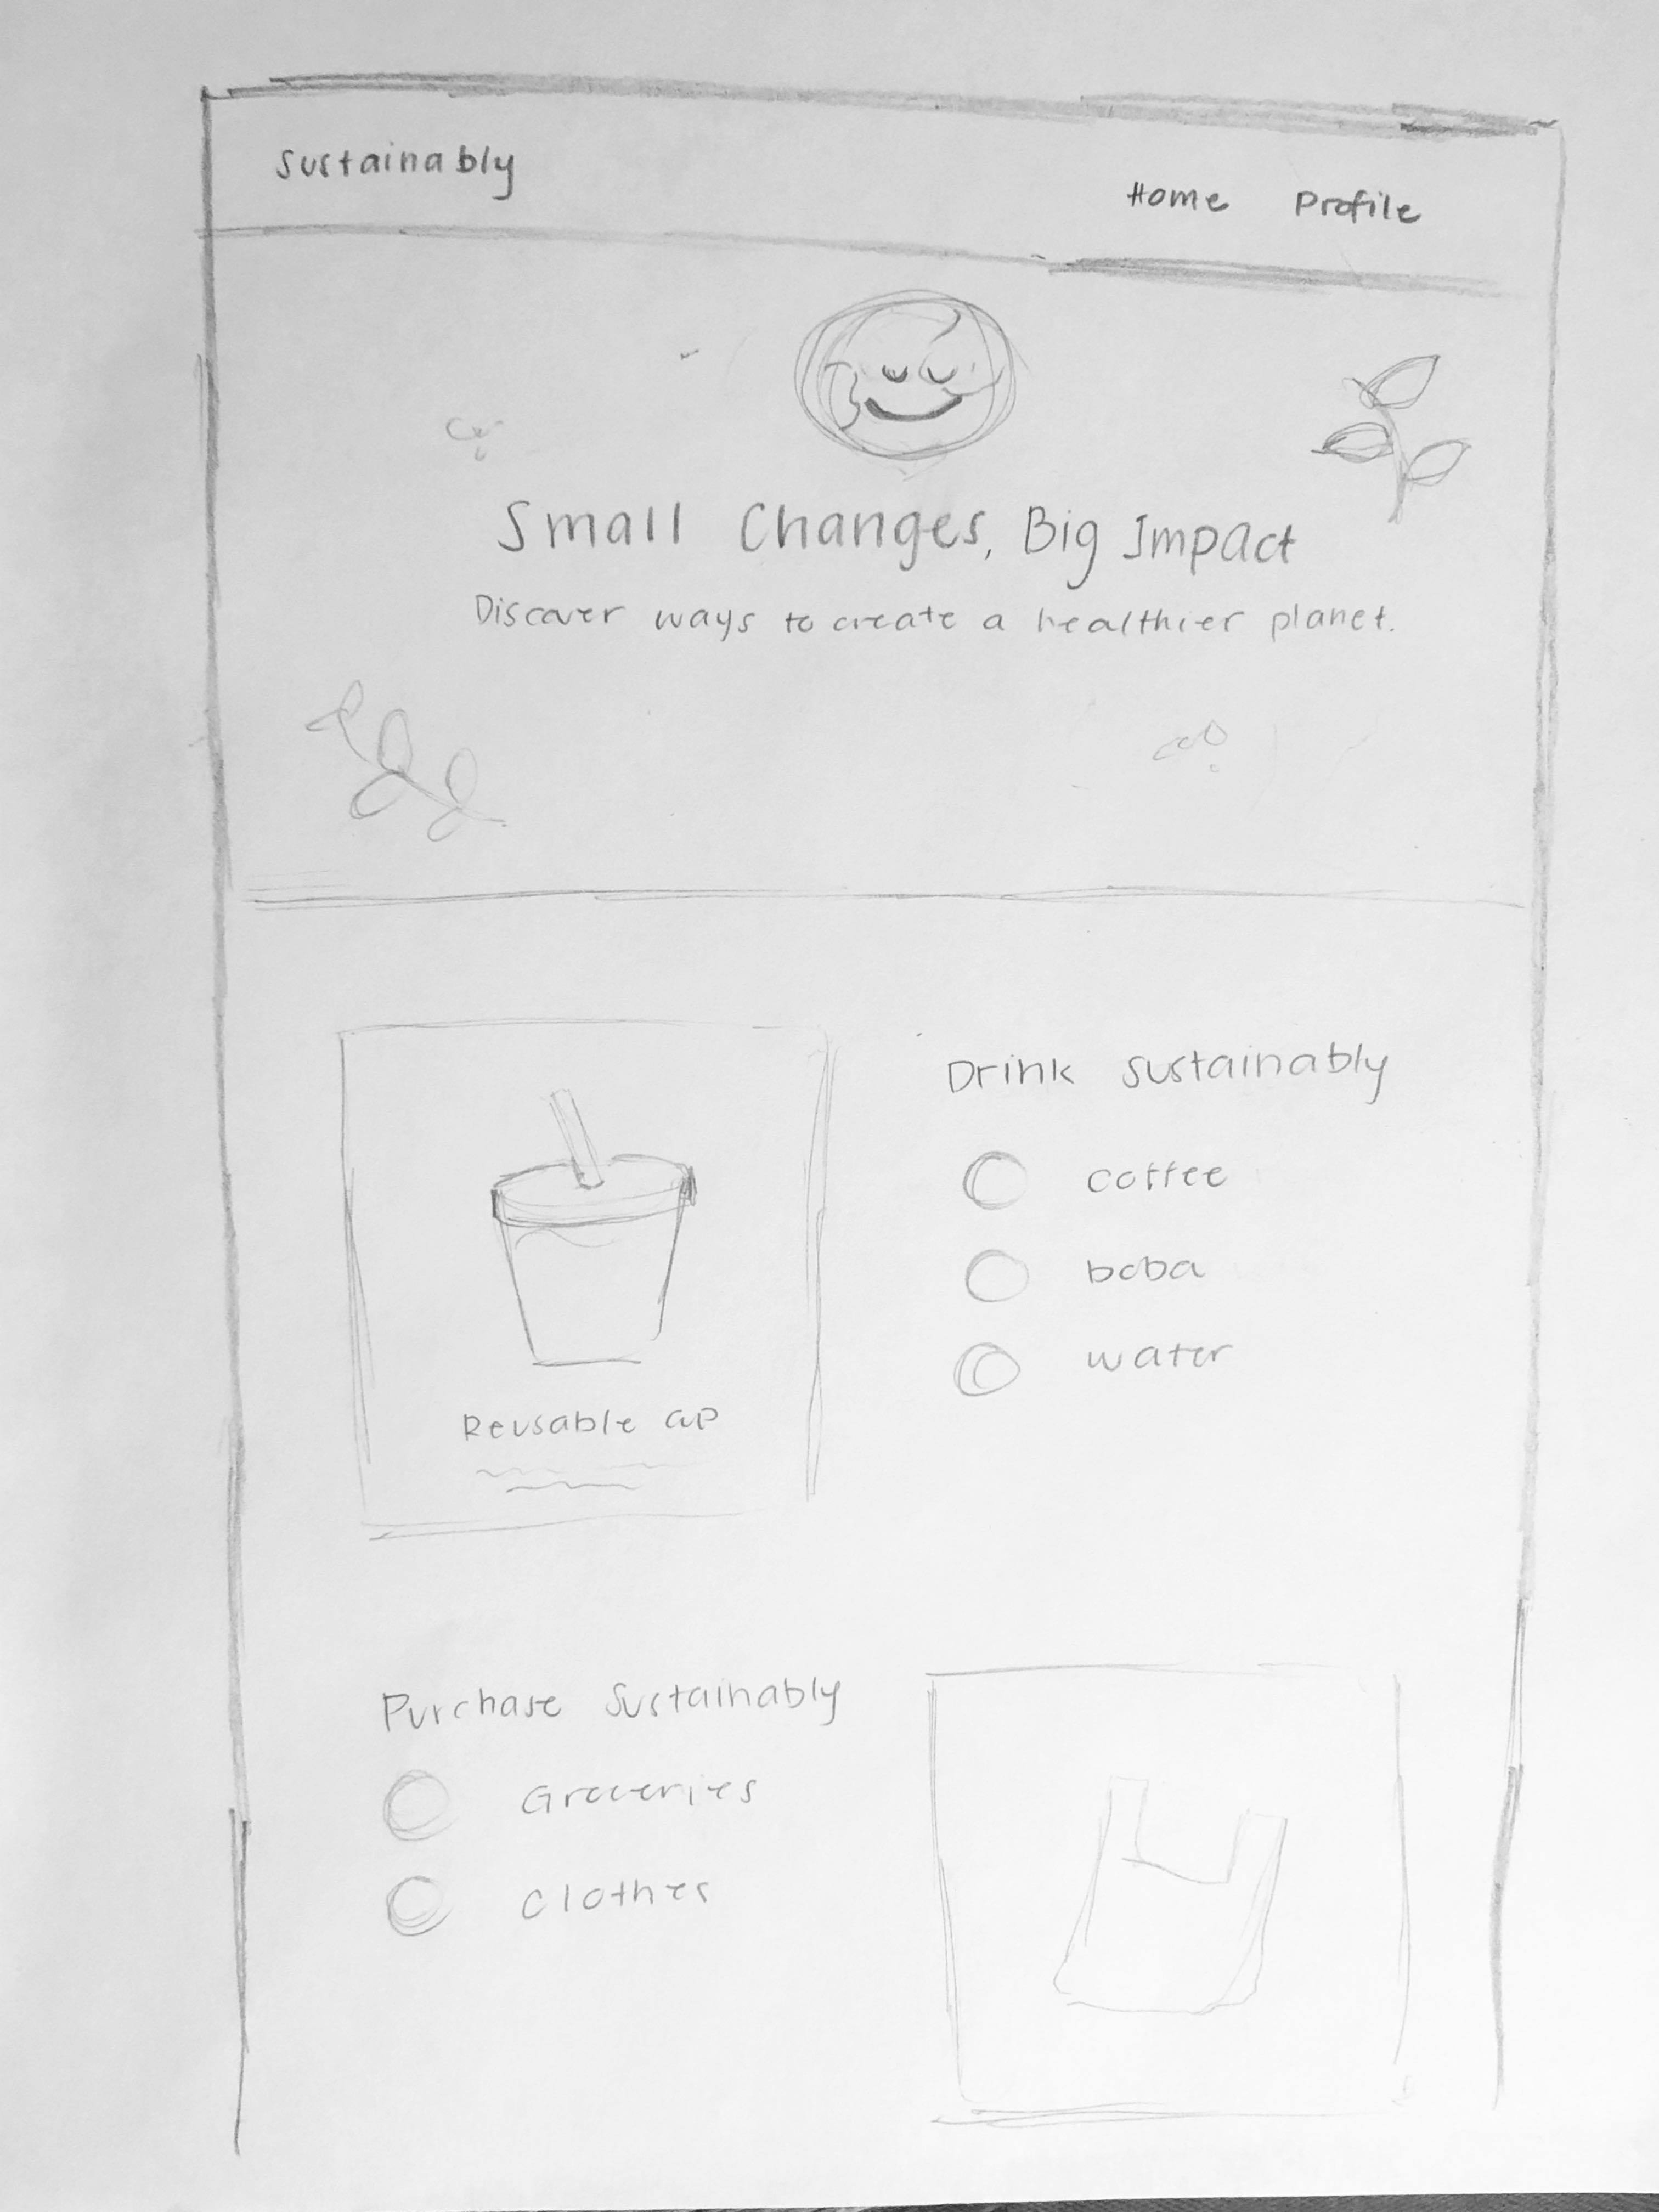 Sustainably
Home Profile
Small Changes, Big Impact
Discover ways to create a healthier planet.
Drink sustainably
coffee
boba
water
Reusable cup
Purchase Sustainably
Groceries
clothes